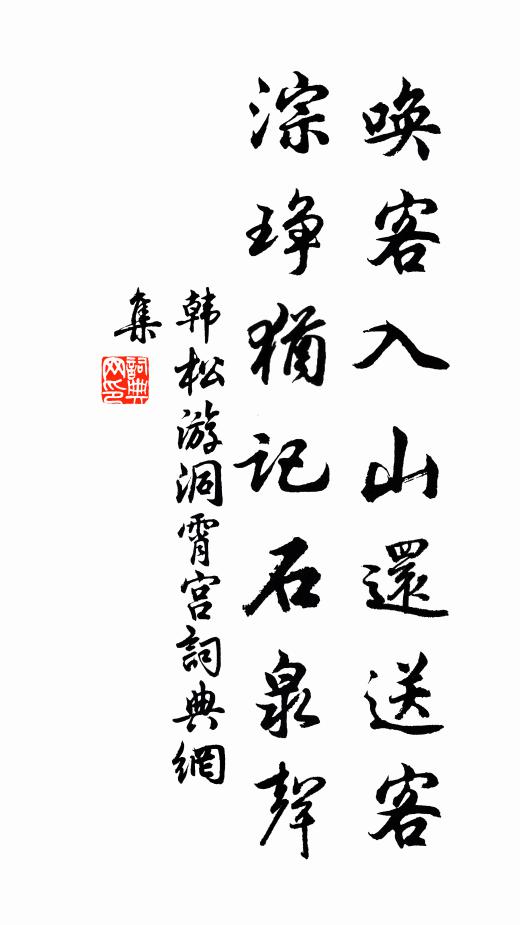 唤客入山還送客
淙琤猶记石泉聲
韩松游洞霄宫詞典網
集
詞典
网印